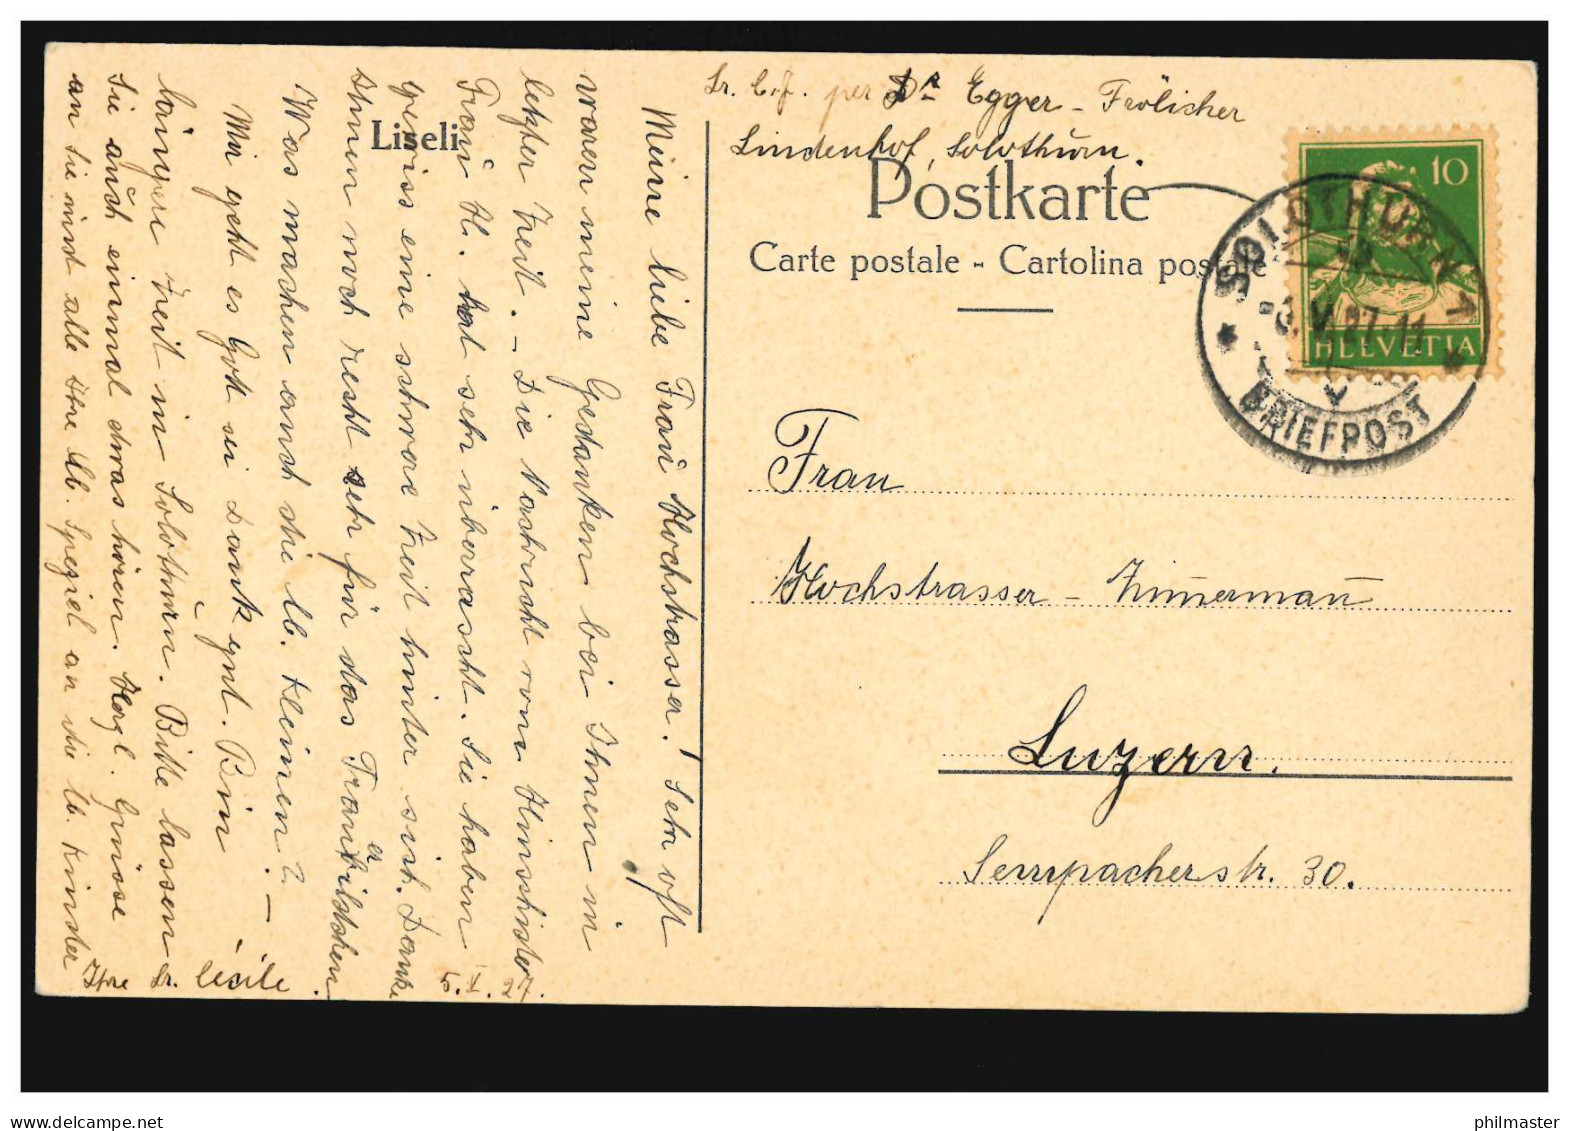 Sr. C.f. per Dr Egger - Frölicher
Lindenhof, Solothurn.
Postkarte
Carte postale - Cartolina postale
Liseli
10
HELVETIA
SOLOTHURN 1
BRIEFPOST
Frau
Hochstrasser - Zim̄erman̄
Luzern.
Sempacherstr. 30.
Meine liebe Frau Hochstrasser! Sehr oft
waren meine Gedanken bei Ihnen in
letzter Zeit. - Die Nachricht vom Hinschiede
Frau H. hat sehr überrascht. Sie haben
gewiss eine schwere Zeit hinter sich. Danke
Ihnen noch recht sehr für das Frauenbildchen
Was machen auch die lb. Kleinen? -
Mir geht es Gott sei Dank gut. Bin
längere Zeit in Solothurn. Bitte lassen
Sie auch einmal etwas hören. Herzl. Grüsse
an Sie und alle Ihre lb. Speziel an die lb. Kinder
Ihre Sr. Cécile.
5. X. 27.
philmaster